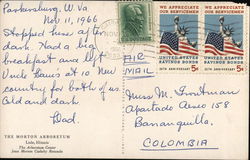 Parkersburg, W. Va.
Nov. 11, 1966
Stopped here after
dark. Had a big
breakfast and left
Uncle at 10 new
country for both of us.
Cold and dark
Dad.
THE MORTON ARBORETUM
Lisle, Illinois
The Arboretum Gate
AIR
MAIL
WE APPRECIATE
OUR SERVICEMEN
UNITED STATES
SAVINGS BONDS
25TH ANNIVERSARY 5¢
WE APPRECIATE
OUR SERVICEMEN
UNITED STATES
SAVINGS BONDS
25TH ANNIVERSARY 5¢
Miss M. Troutman
Apartado Aereo 158
Barranquilla,
COLOMBIA